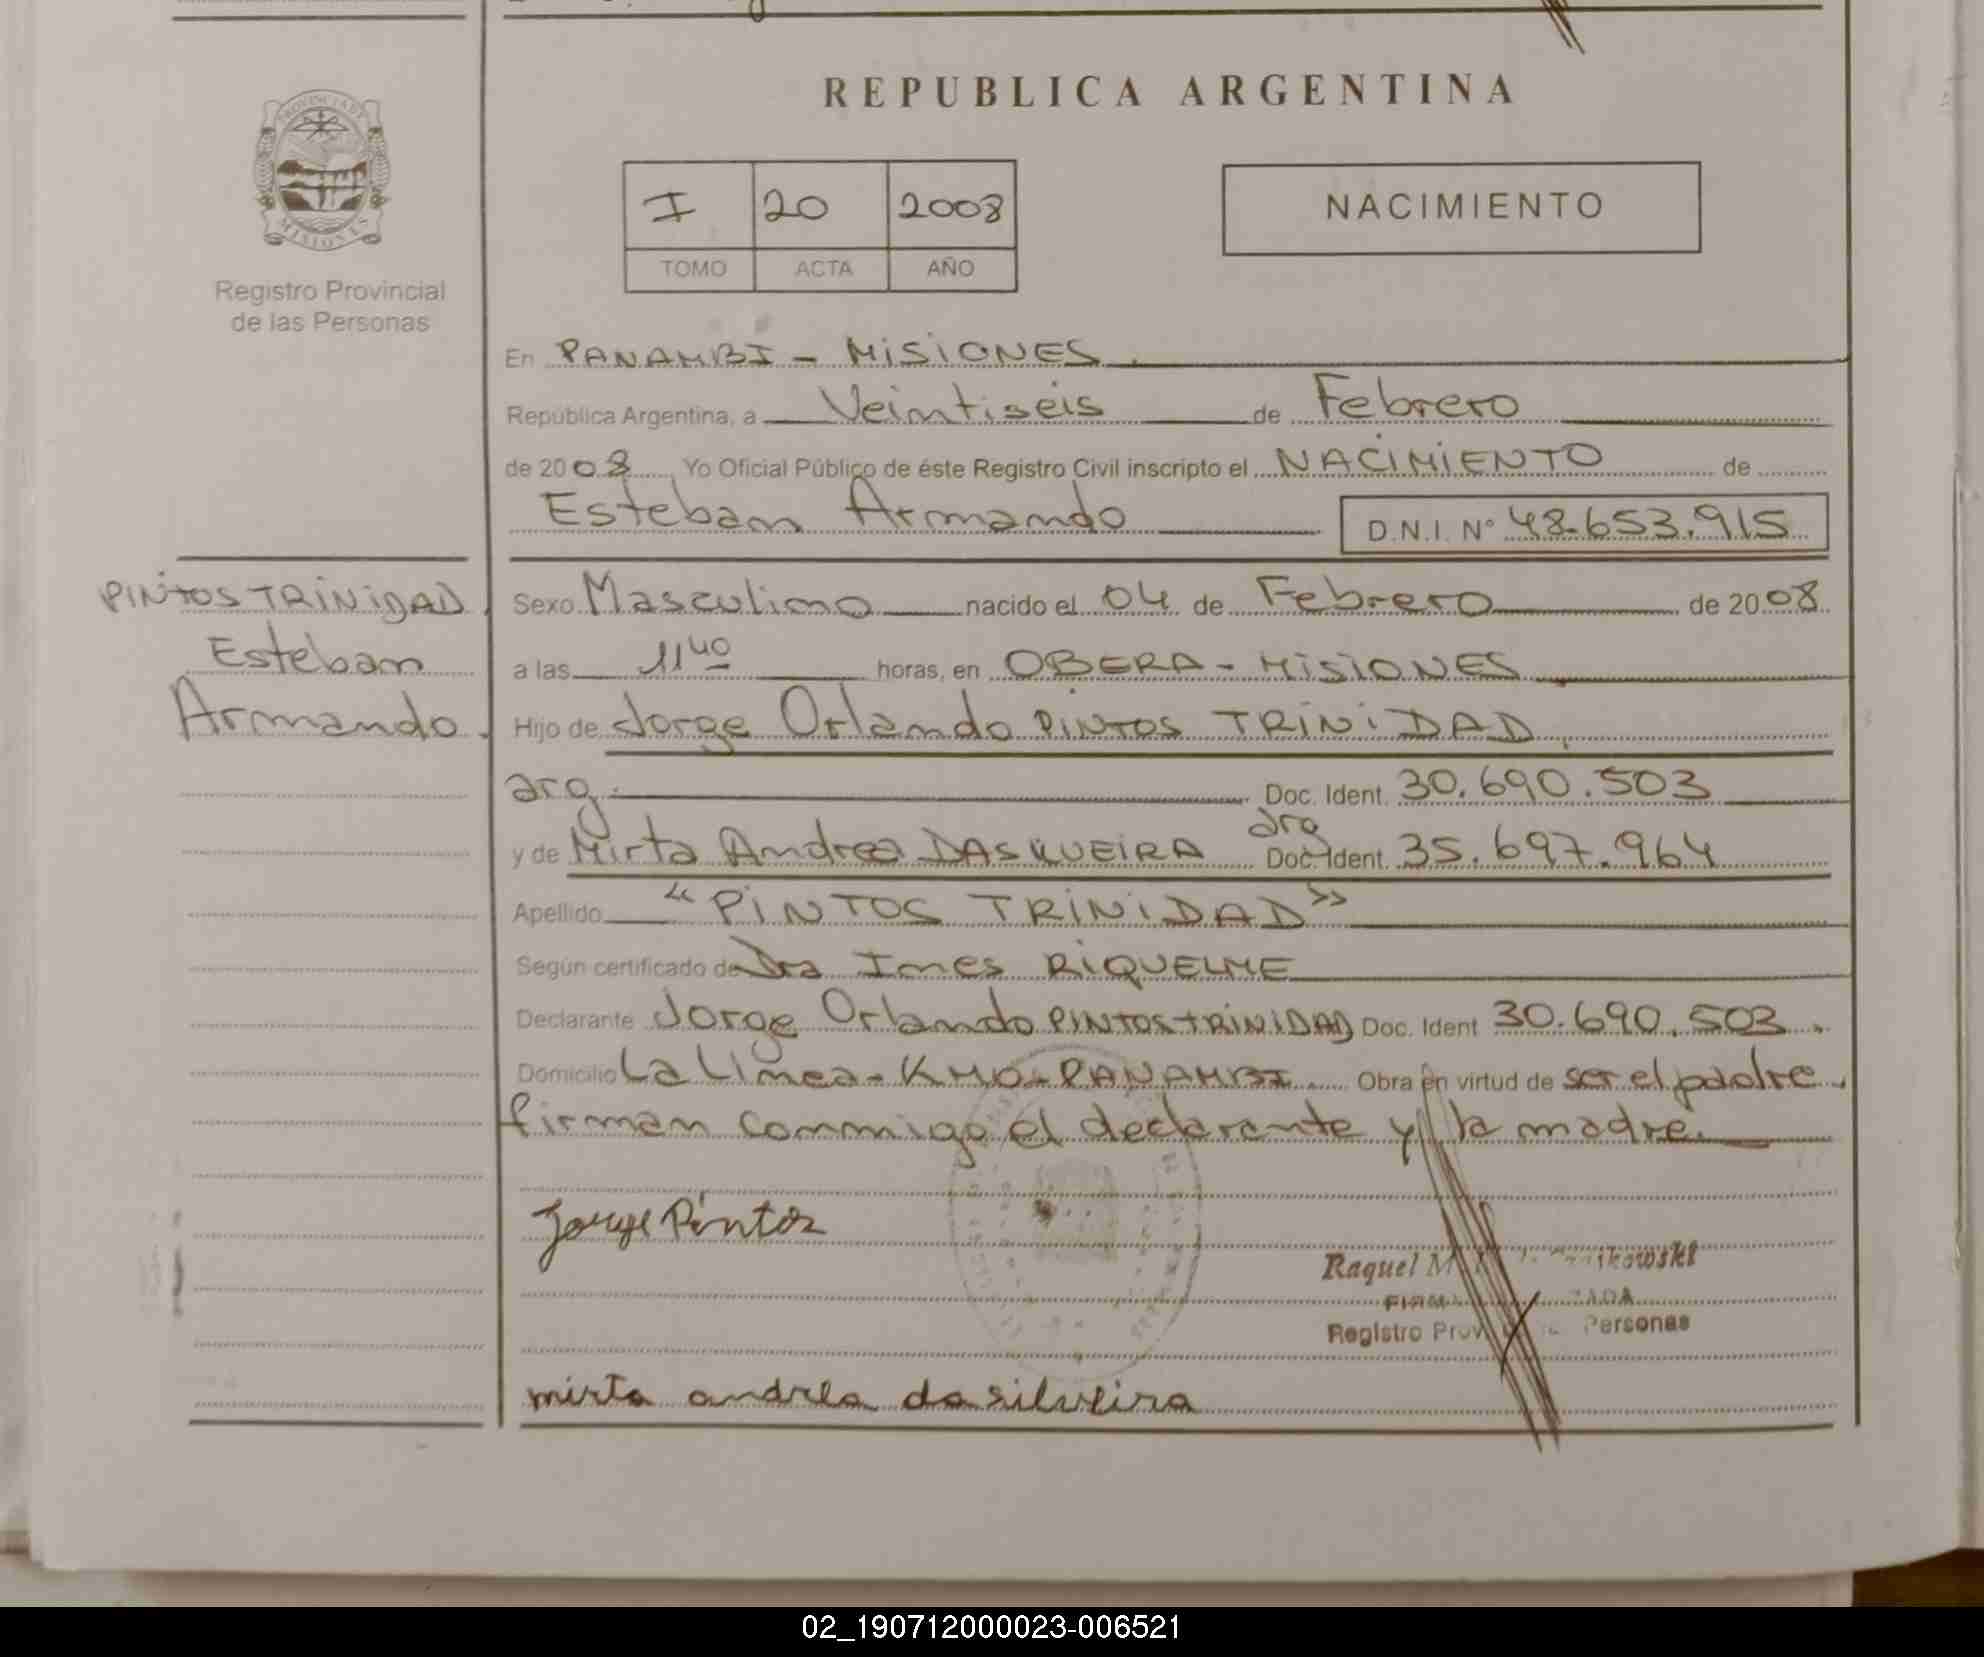 REPUBLICA ARGENTINA
PROVINCIA DE
MISIONES
Registro Provincial
de las Personas
I 20 2008
TOMO ACTA AÑO
NACIMIENTO
En PANAMBI - MISIONES
República Argentina, a Veintiseis de Febrero
de 2008 Yo Oficial Público de éste Registro Civil inscripto el NACIMIENTO de
Esteban Armando D.N.I. Nº 48.653.915
PINTOS TRINIDAD
Esteban
Armando.
Sexo Masculino nacido el 04 de Febrero de 2008
a las 11 40 horas, en OBERA - MISIONES
Hijo de Jorge Orlando PINTOS TRINIDAD
arg. Doc. Ident. 30.690.503
y de Mirta Andrea arg Doc. Ident. 35.697.964
Apellido "PINTOS TRINIDAD"
Según certificado de Dra Ines RIQUELME
Declarante Jorge Orlando PINTOS TRINIDAD Doc. Ident 30.690.503.
Domicilio La Linea - PANAMBI. Obra en virtud de ser el padre.
firman conmigo el declarante y la madre.
Jorge Pintos
Raquel
Registro Personas
mirta andrea da silveira
02_190712000023-006521